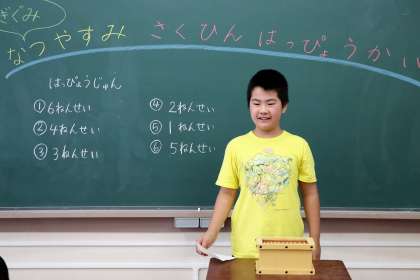 ぎぐみ
なつやすみ さくひん はっぴょうかい
はっぴょうじゅん
①6ねんせい
②4ねんせい
③3ねんせい
④2ねんせい
⑤1ねんせい
⑥5ねんせい